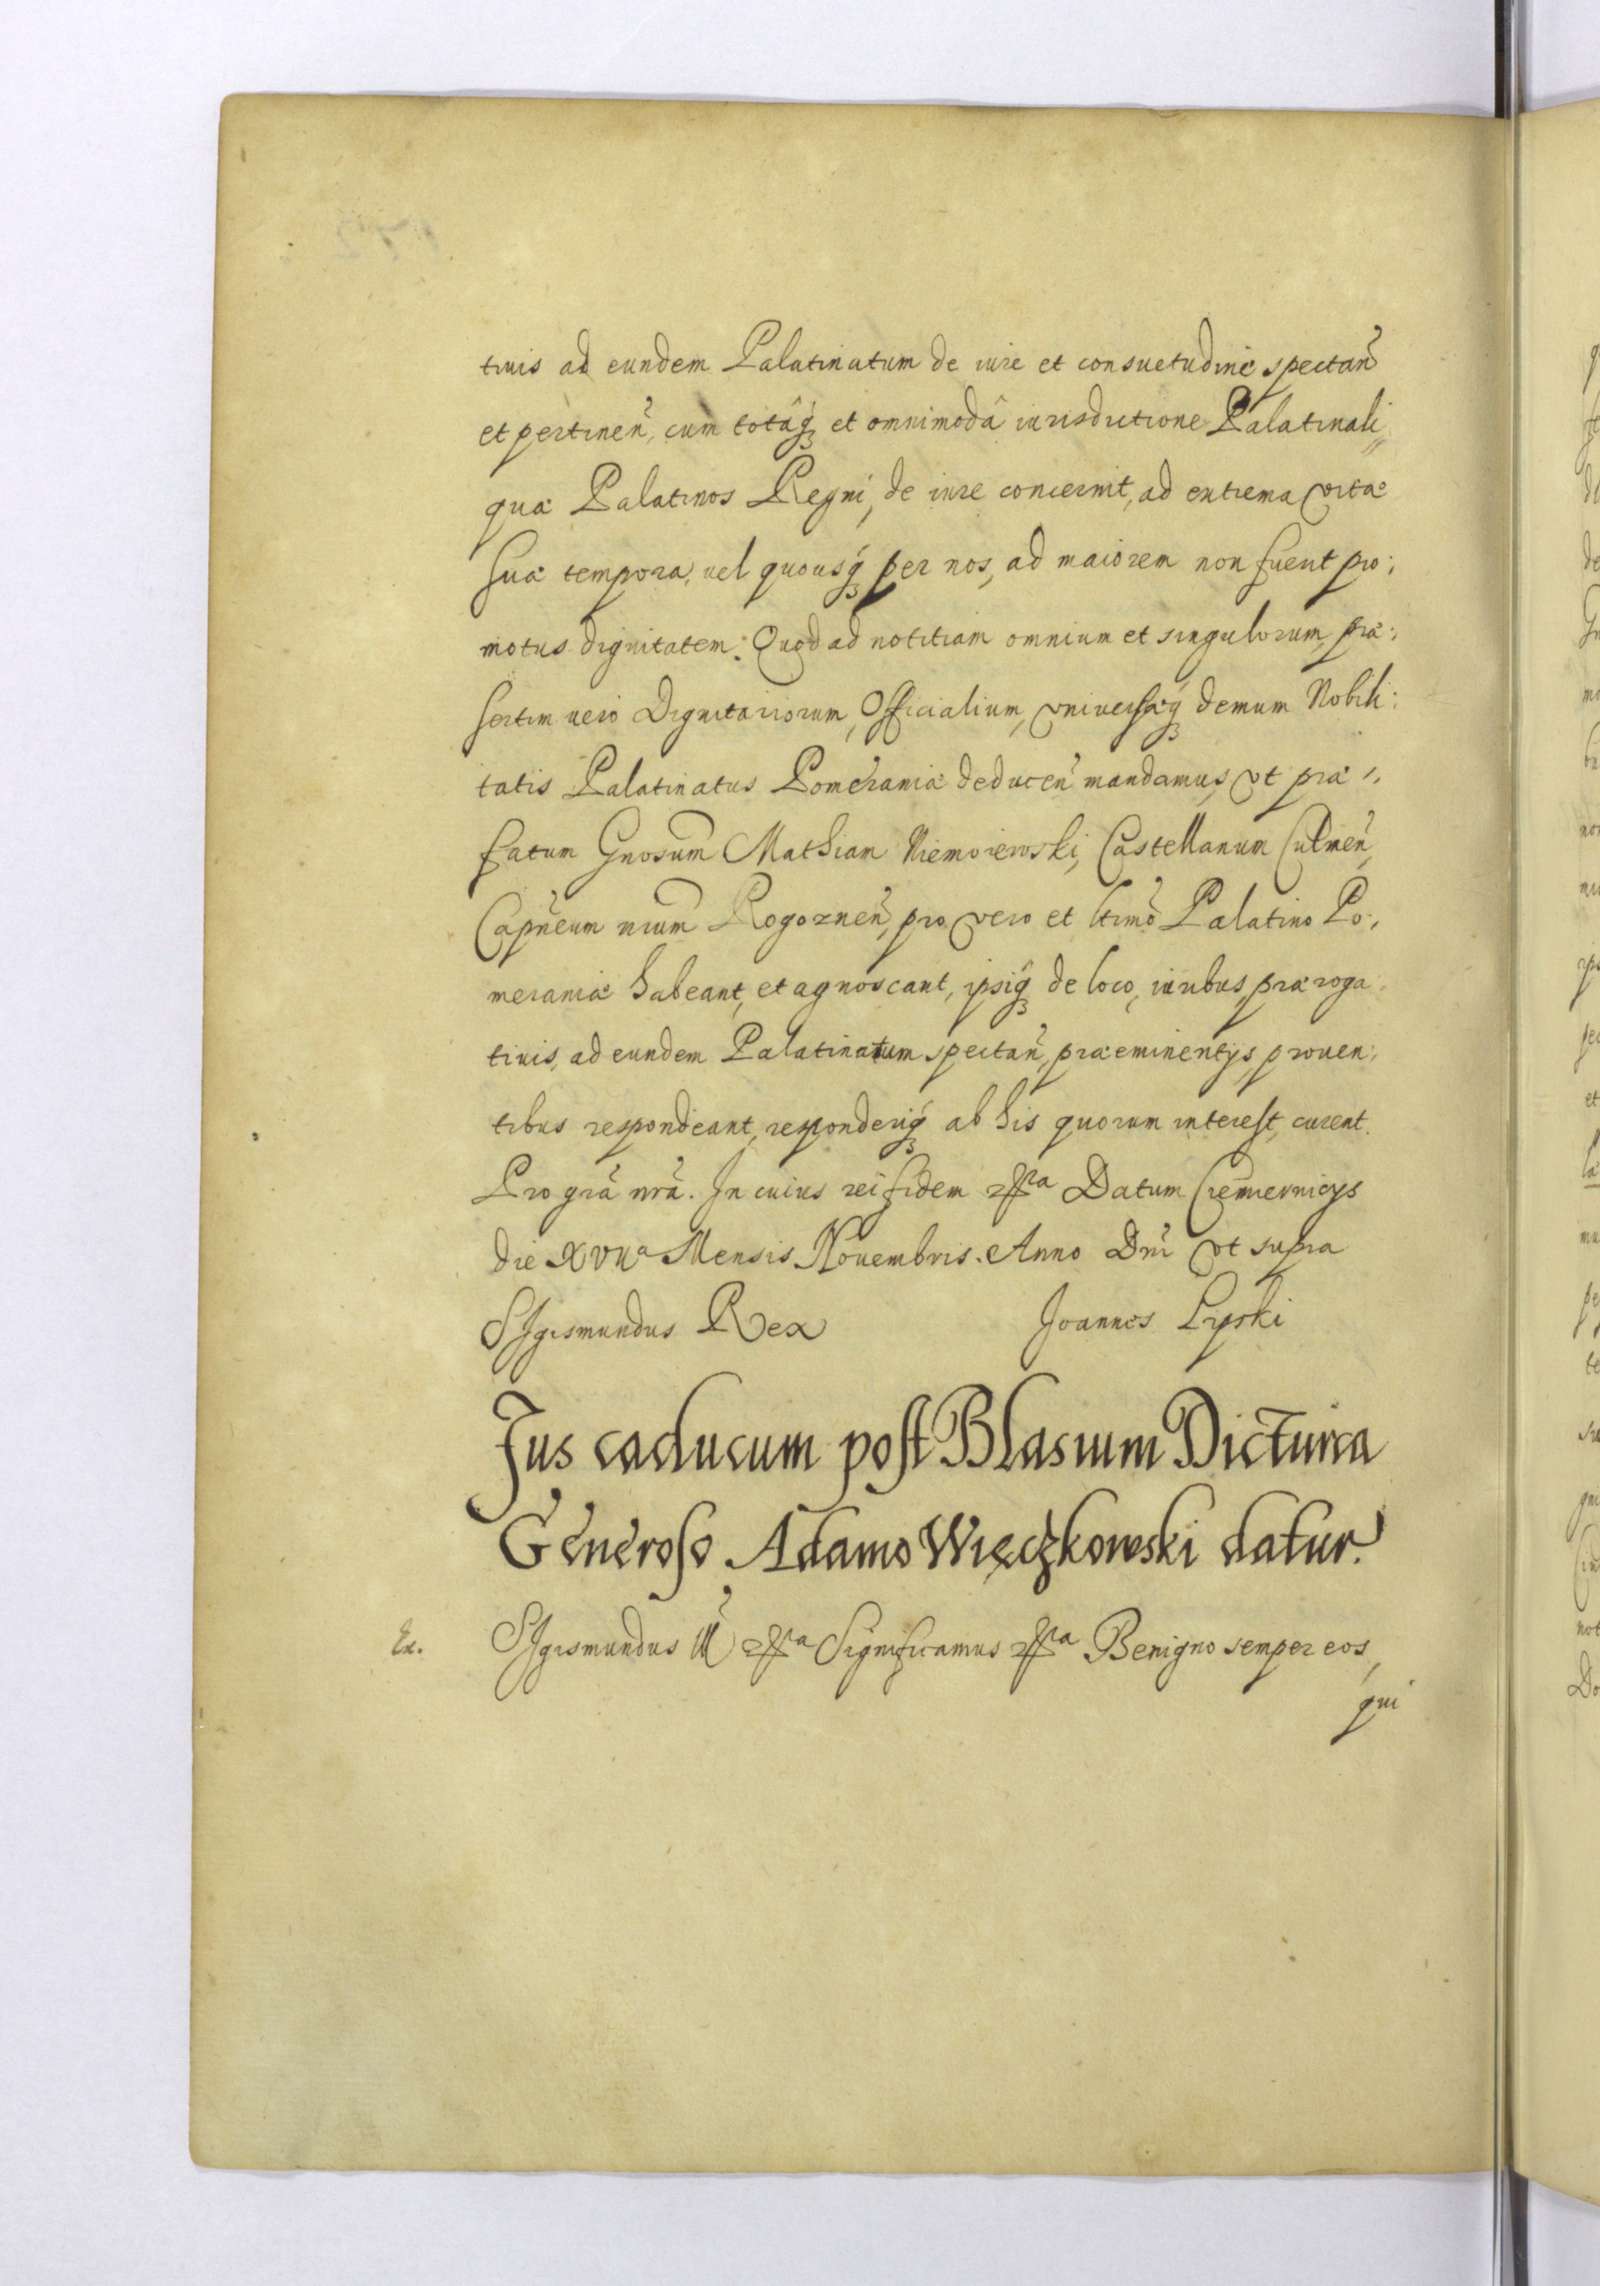 tiuis ad eundem Palatinatum de iure et consuetudine spectañ
et pertineñ, cum totâq3 et omnimodâ iurisdictione Palatinali
quæ Palatinos Regni, de iure concernit, ad extrema vitæ
suæ tempora, uel quousq3 per nos, ad maiorem non fuerit pro:
motus dignitatem. Quod ad notitiam omnium et singulorum, præ:
sertim uero Dignitariorum, Officialium, vniuersæq3 demum Nobili:
tatis Palatinatus Pomeraniæ deduceñ mandamus, vt præ:
fatum Gnosum Mathiam Niemoiewski, Castellanum Culmeñ,
Capñeum nrum Rogozneñ, pro vero et ltimo Palatino Po:
meraniæ habeant, et agnoscant, ipsiq3 de loco, iuribus, præroga:
tiuis, ad eundem Palatinatum spectañ, præeminentijs, prouen:
tibus respondeant, responderiq3 ab his quorum interest, curent.
Pro grã nrã. In cuius rei fidem etca Datum Niepolomicijs
die XVIIa Mensis Nouembris. Anno Dni vt supra
Sigismundus Rex Joannes Lipski
Jus caducum post Blasium Dicturca
Generoso Adamo Więczkowski datur.
Ex. Sigismundus III etca Significamus etca Benigno semper eos,
qui